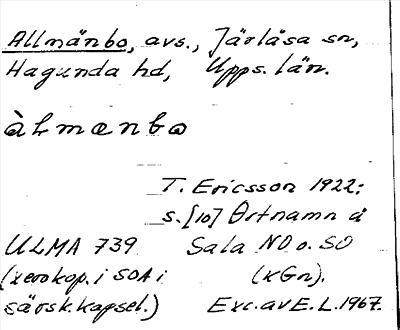 Allmänbo, avs., Järlåsa sn,
Hagunda hd, Upps. län.
àlmænbo
T. Ericsson 1922:
s. [10] Ortnamn å
ULMA 739 Sala NO o. SO
(xerokop. i SOA i (xGn).
särsk. kapsel.) Exc. av E. L. 1967.